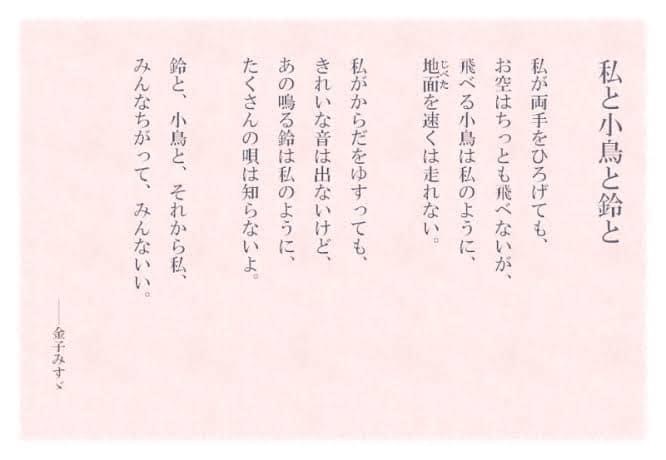 私と小鳥と鈴と
私が両手をひろげても、
お空はちっとも飛べないが、
飛べる小鳥は私のように、
地面を速くは走れない。
じべた
私がからだをゆすっても、
きれいな音は出ないけど、
あの鳴る鈴は私のように、
たくさんの唄は知らないよ。
鈴と、小鳥と、それから私、
みんなちがって、みんないい。
――金子みすゞ